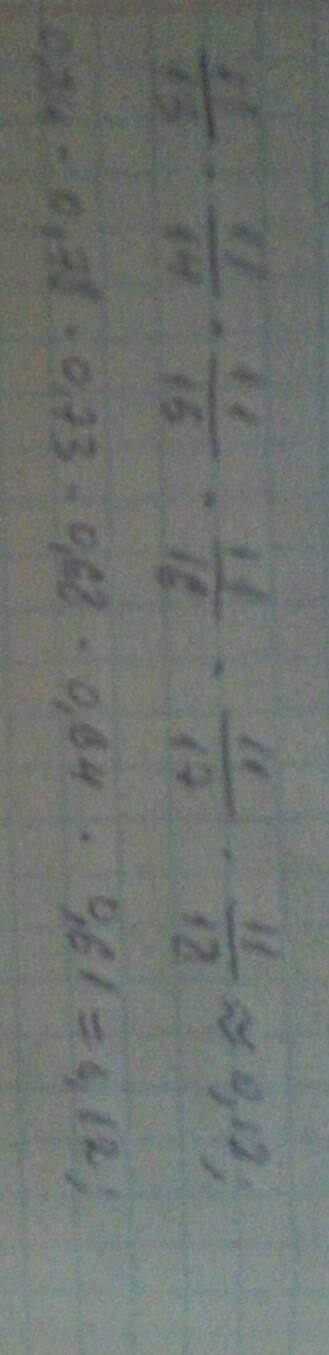 11/13 · 11/14 · 11/15 · 11/16 · 11/17 · 11/18 ≈ 0,12;
0,84 · 0,78 · 0,73 · 0,68 · 0,64 · 0,61 = 0,12;